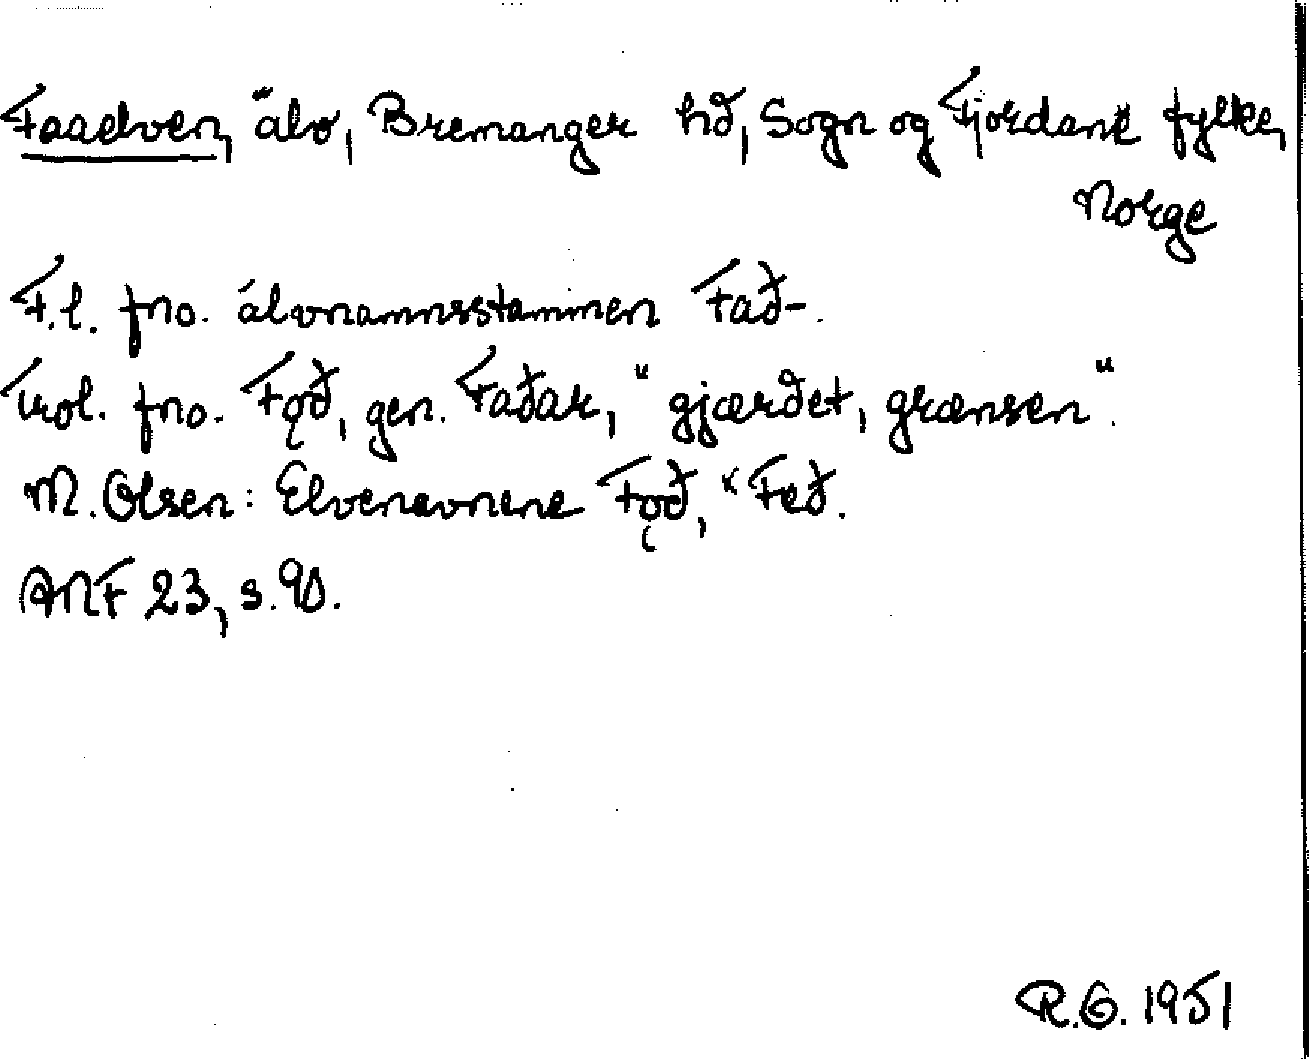 Faaelven, älv, Bremanger hd, Sogn og Fjordane fylke,
Norge
F.l. fno. älvnamnsstammen Fað-.
Trol. fno. Fǫð, gen. Faðar, "gjærdet, grænsen".
M. Olsen: Elvenavnene Fǫð, *Feð.
ANF 23, s. 90.
R.O. 1951